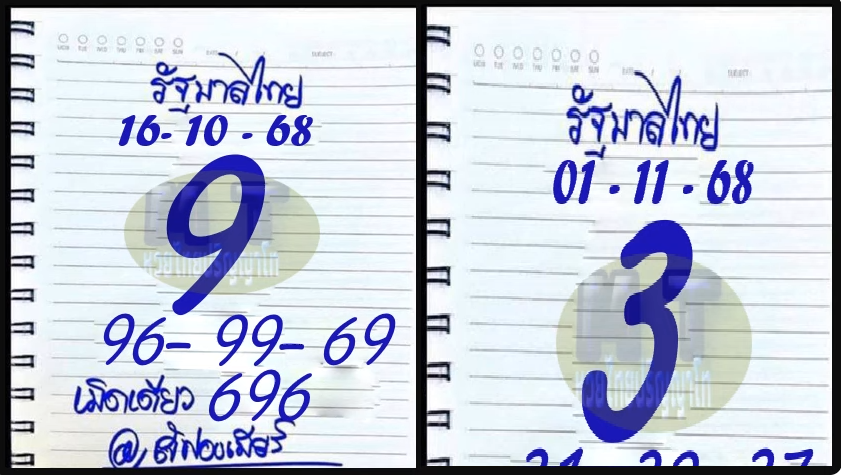 MON TUE WED THU FRI SAT SUN
DATE / / SUBJECT
รัฐบาลไทย
16-10-68
9
96-99-69
เม็ดเดียว 696
MON TUE WED THU FRI SAT SUN
DATE / / SUBJECT
รัฐบาลไทย
01-11-68
3